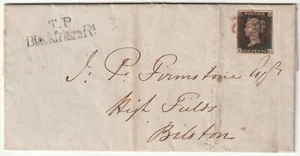 T.P
Blackfriars Rd
J. P. Firmstone Esqr.
High Fields
Bilston
POSTAGE
ONE PENNY